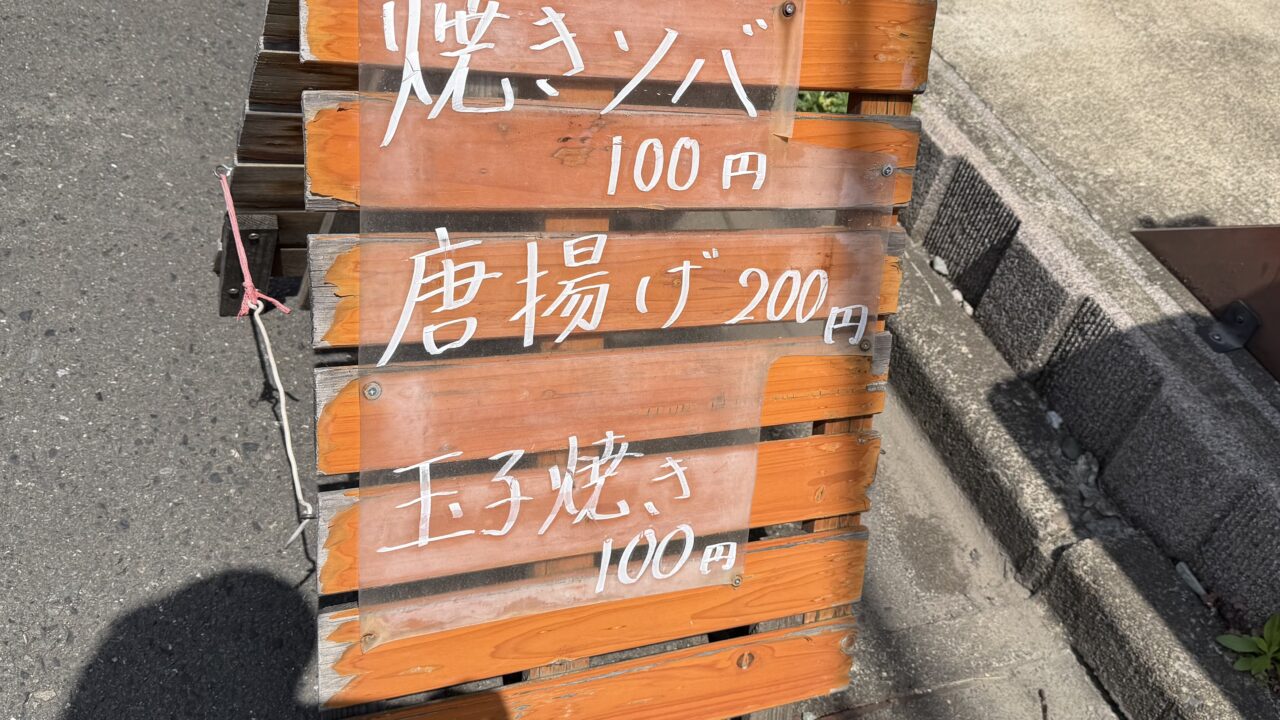 焼きソバ
100円
唐揚げ 200円
玉子焼き
100円